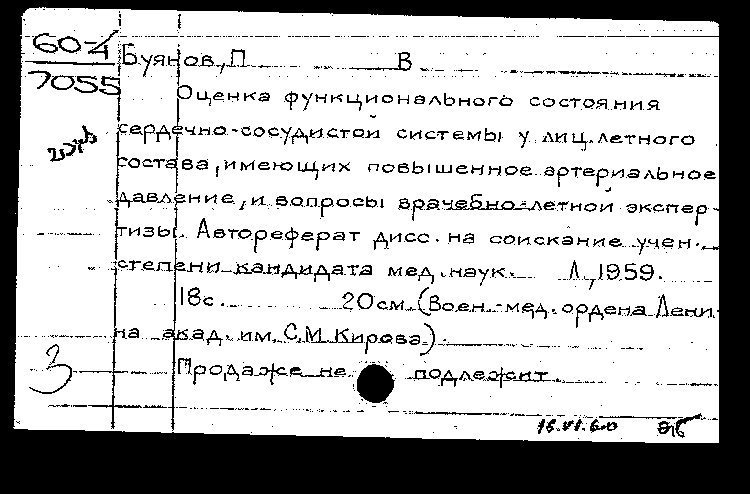 60-4
7055
Буянов, П В
Оценка функционального состояния
сердечно-сосудистой системы у лиц летного
состава, имеющих повышенное артериальное
давление, и вопросы врачебно-летной экспер-
тизы. Автореферат дисс. на соискание учен.
степени кандидата мед. наук. Л., 1959.
18с. 20см. (Воен.-мед. ордена Лени-
на акад. им. С.М.Кирова).
3
Продаже не подлежит.
16.VI.60